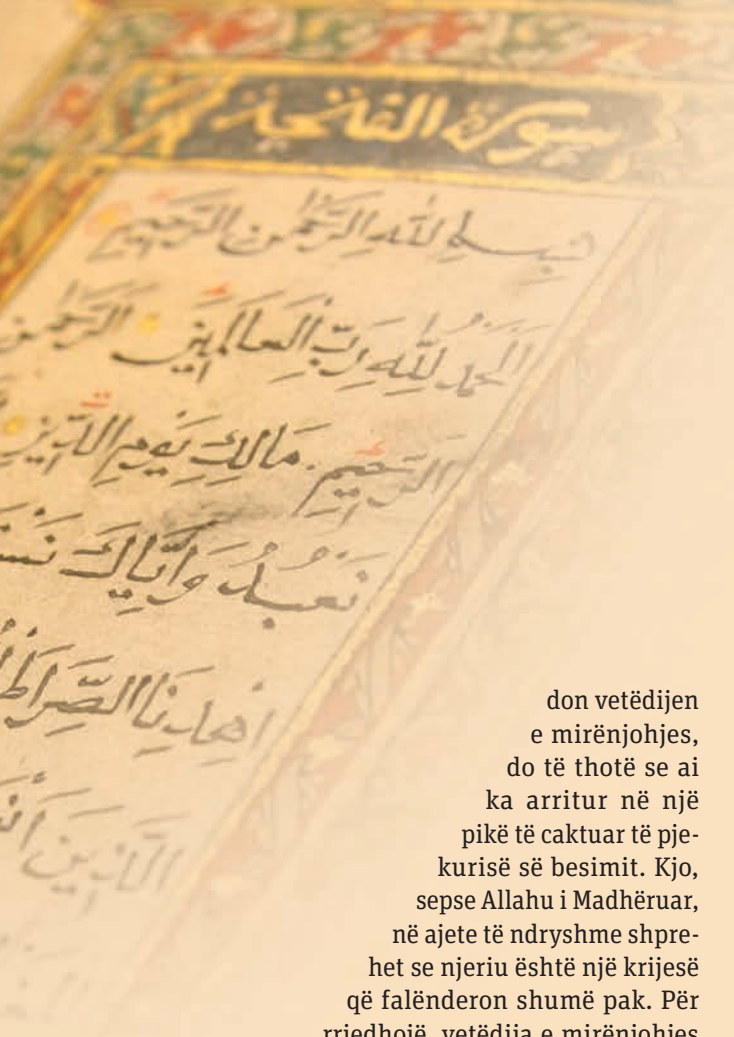 سورة الفاتحة
بِسْمِ اللَّهِ الرَّحْمَٰنِ الرَّحِيمِ
الْحَمْدُ لِلَّهِ رَبِّ الْعَالَمِينَ الرَّحْمَٰنِ
الرَّحِيمِ مَالِكِ يَوْمِ الدِّينِ
نَعْبُدُ وَإِيَّاكَ
اهْدِنَا الصِّرَاطَ
الَّذِينَ
don vetëdijen
e mirënjohjes,
do të thotë se ai
ka arritur në një
pikë të caktuar të pje-
kurisë së besimit. Kjo,
sepse Allahu i Madhëruar,
në ajete të ndryshme shpre-
het se njeriu është një krijesë
që falënderon shumë pak. Për
rrjedhojë, vetëdija e mirënjohjes